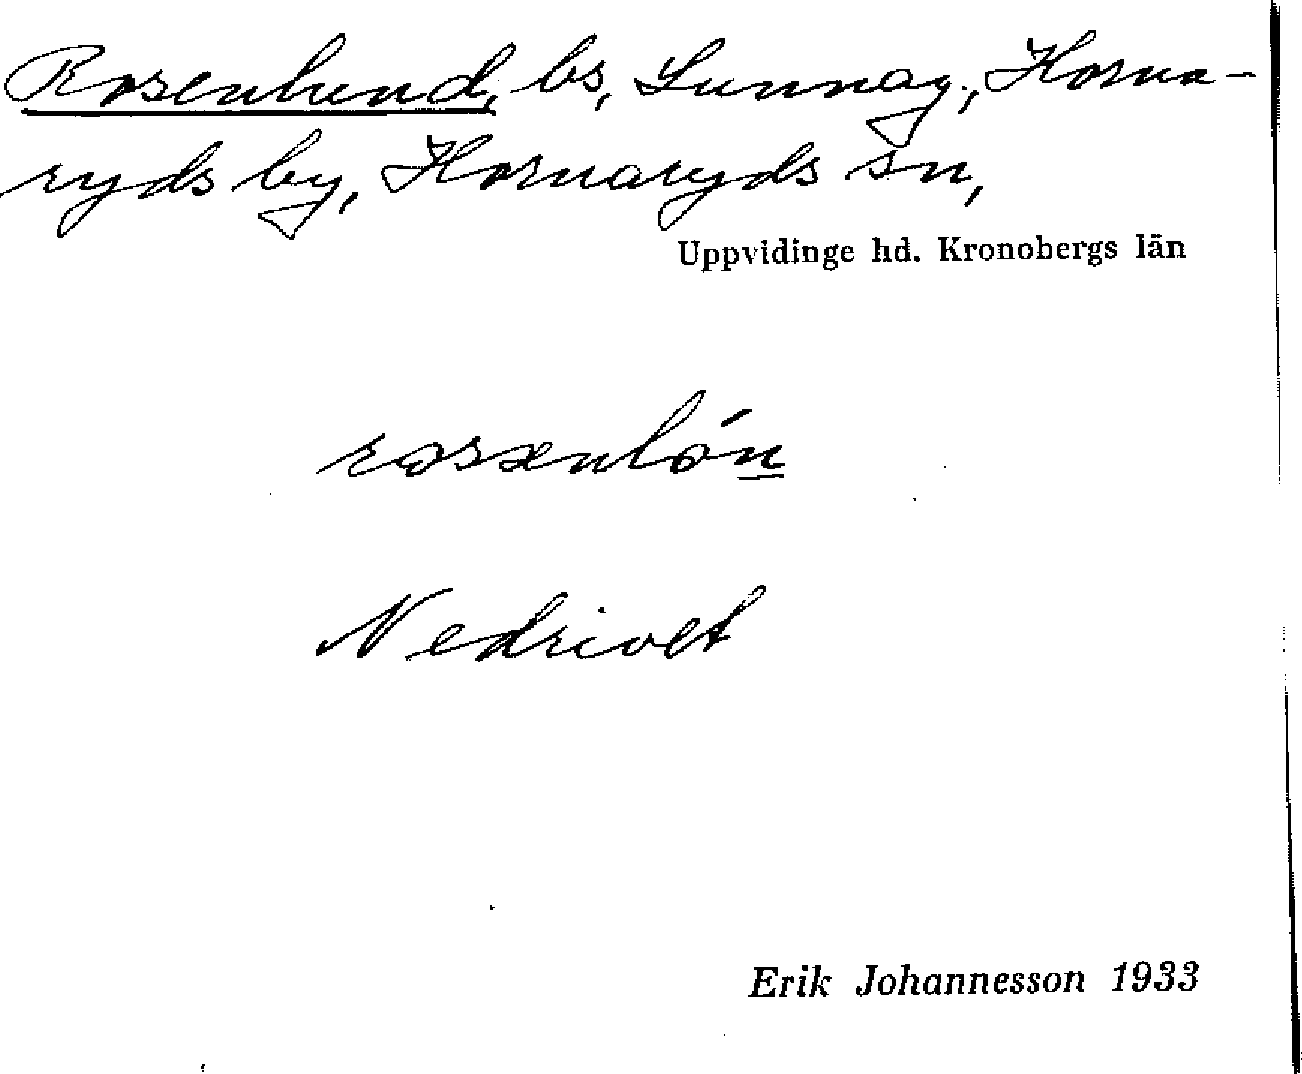 Rosenlund, bs, Lunnag., Horna-
ryds by, Hornaryds sn,
Uppvidinge hd. Kronobergs län
Nedrivet
Erik Johannesson 1933